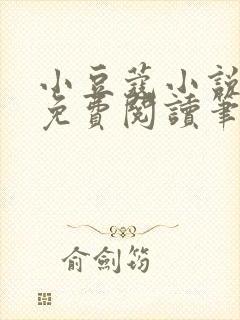 小豆蔻小說
免費閱讀筆
俞劍筠